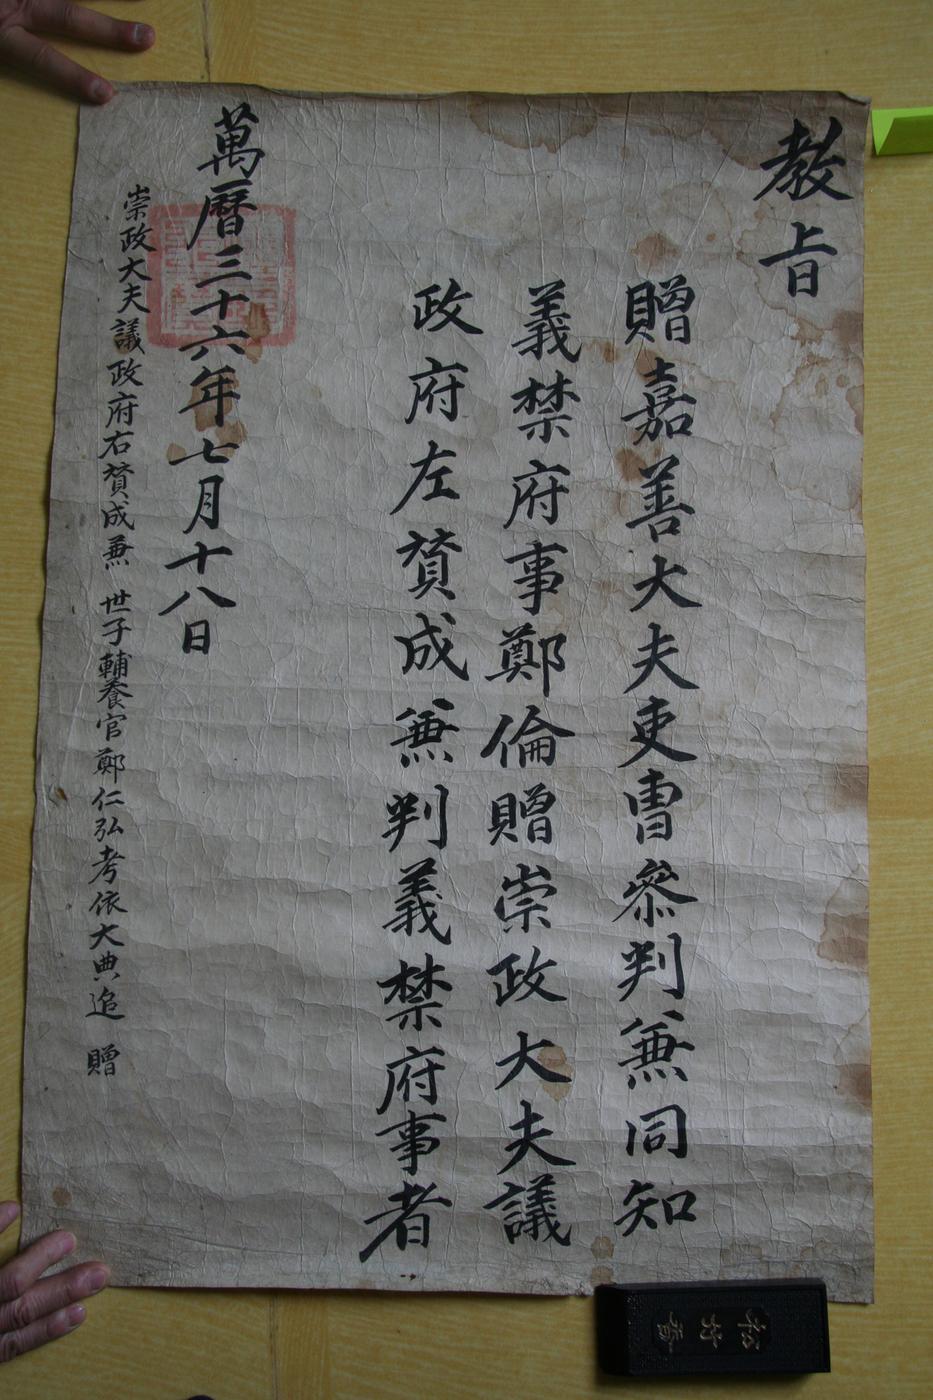 教旨
贈嘉善大夫吏曹參判兼同知
義禁府事鄭倫贈崇政大夫議
政府左贊成兼判義禁府事者
萬曆三十六年七月十八日
崇政大夫議政府右贊成兼 世子輔養官鄭仁弘考依大典追 贈
松竹香